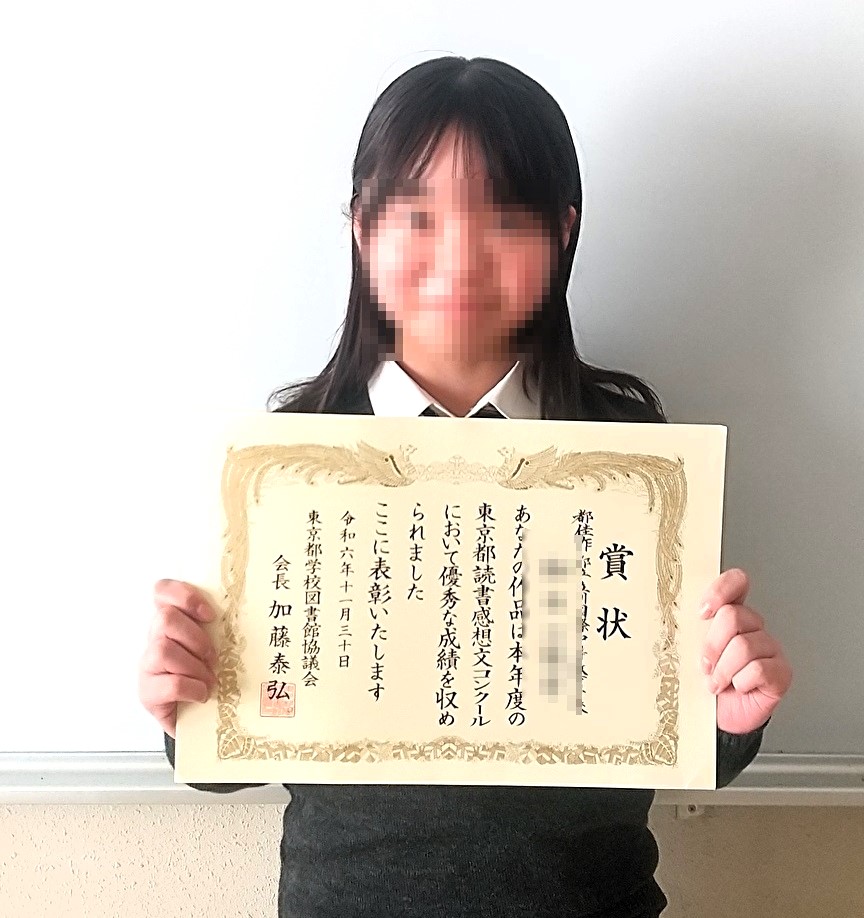 賞状
都佳作
あなたの作品は本年度の
東京都読書感想文コンクール
において優秀な成績を収め
られました
ここに表彰いたします
令和六年十一月三十日
東京都学校図書館協議会
会長 加藤泰弘